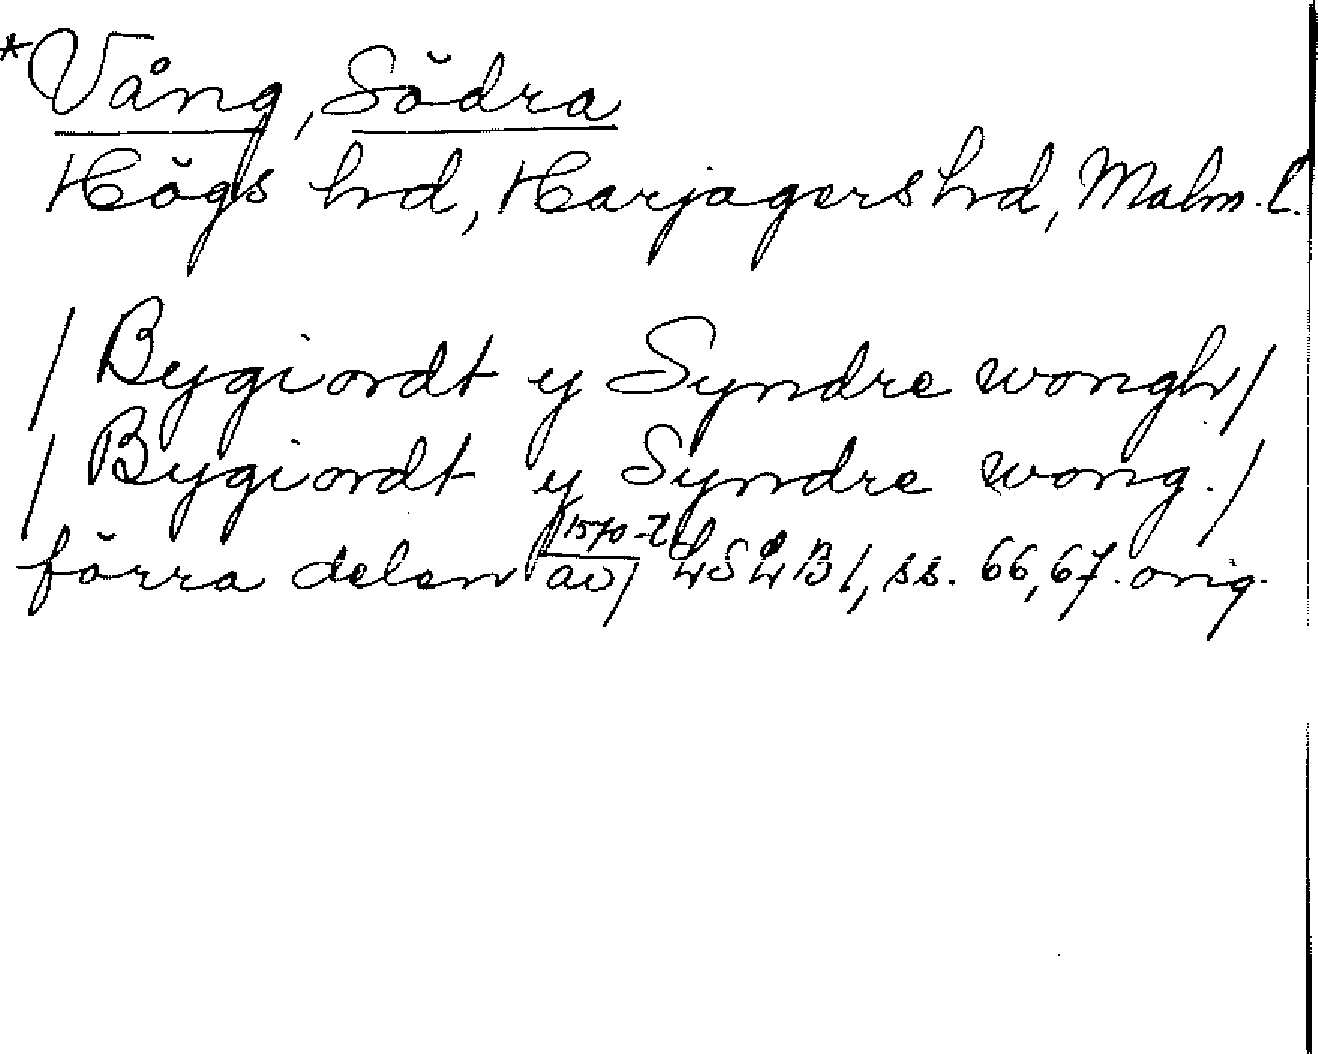 *Vång, Södra
Högs hd, Harjagers hd, Malm. l.
/ Bygiordt y Syndre wongh /
/ Bygiordt y Syndre wong. /
förra delen av / 1570-t. LSLB 1, ss. 66, 67. orig.